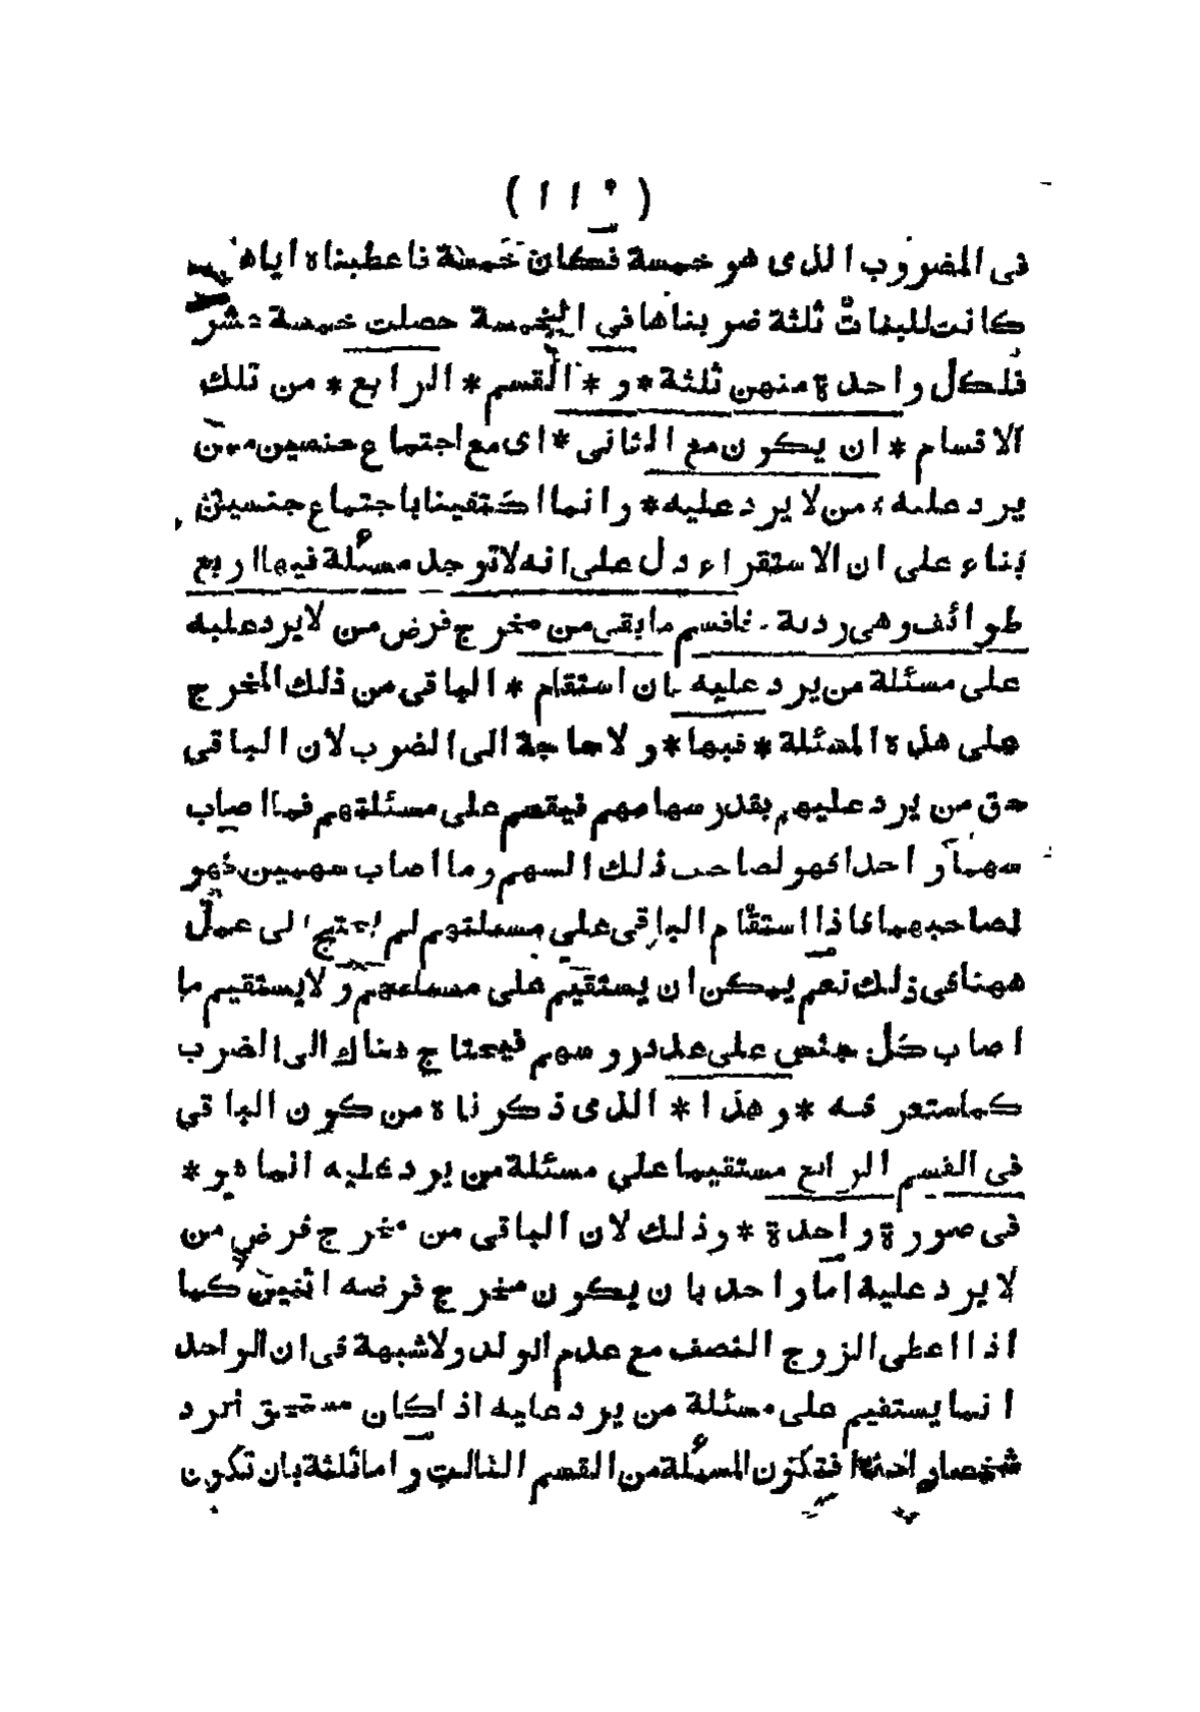 ( ١١٥ )
فى المضروب الذى هو خمسة فكان خمسة فاعطيناه اياها
كانت للبنات ثلثة ضربناها فى الخمسة حصلت خمسة عشر
فلكل واحدة منهن ثلثة * و * القسم * الرابع * من تلك
الاقسام * ان يكون مع الثانى * اى مع اجتماع جنسين ممن
يرد عليه من لا يرد عليه * وانما اكتفينا باجتماع جنسين
بناء على ان الاستقراء دل على انه لا توجد مسئلة فيها اربع
طوائف وهى ردية . فاقسم ما بقى من مخرج فرض من لا يرد عليه
على مسئلة من يرد عليه فان استقام * الباقى من ذلك المخرج
على هذه المسئلة * فبها * ولا حاجة الى الضرب لان الباقى
حق من يرد عليهم بقدر سهامهم فيقسم على مسئلتهم فما اصاب
سهما واحدا فهو لصاحب ذلك السهم وما اصاب سهمين فهو
لصاحبهما فاذا استقام الباقى على مسئلتهم لم يحتج الى عمل
ههنا فى ذلك نعم يمكن ان يستقيم على مسئلتهم ولا يستقيم ما
اصاب كل جنس على عدد رؤسهم فيحتاج هناك الى الضرب
كما ستعرفه * وهذا * الذى ذكرناه من كون الباقى
فى القسم الرابع مستقيما على مسئلة من يرد عليه انما هو *
فى صورة واحدة * وذلك لان الباقى من مخرج فرض من
لا يرد عليه اما واحد بان يكون مخرج فرضه اثنين كما
اذا اعطى الزوج النصف مع عدم الولد ولا شبهة فى ان الواحد
انما يستقيم على مسئلة من يرد عليه اذا كان مستحق الرد
شخصا واحدا فتكون المسئلة من القسم الثالث واما ثلثة بان تكون